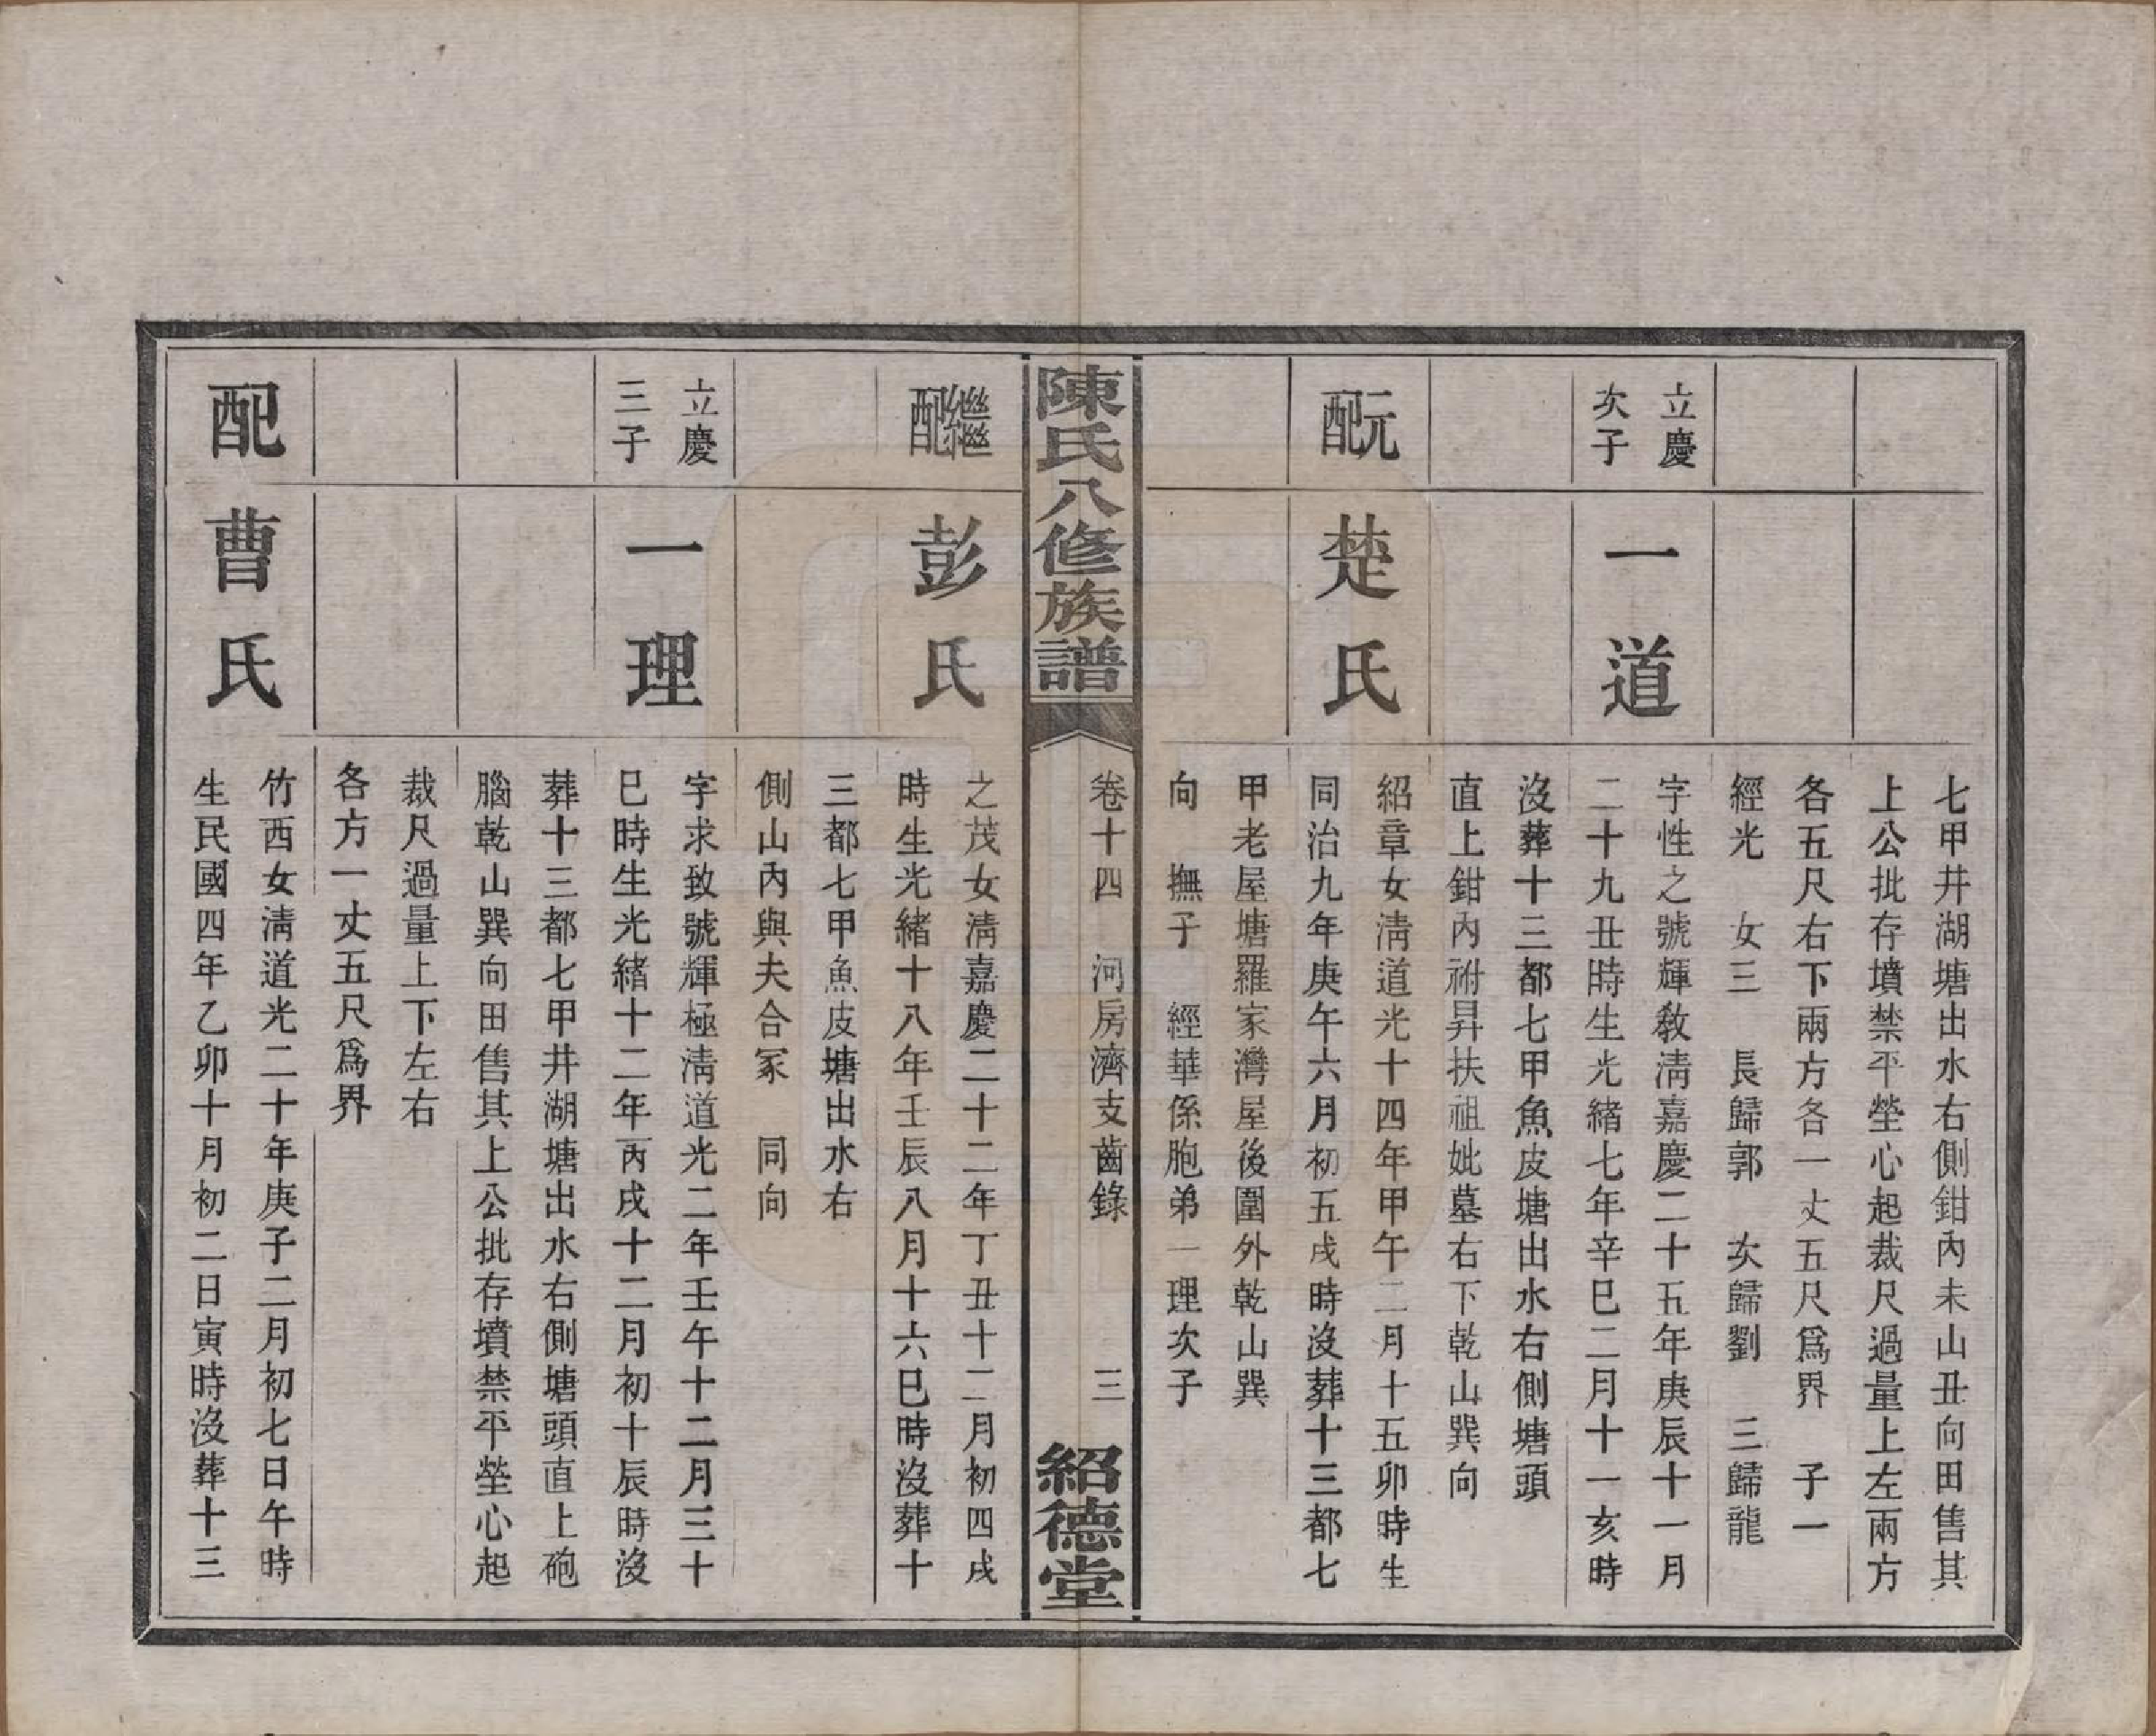 七甲井湖塘出水右側鉗內未山丑向田售其
上公批存墳禁平塋心起裁尺過量上左兩方
各五尺右下兩方各一丈五尺爲界　子一
經光　女三　長歸郭　次歸劉　三歸龍
立慶
次子
一道
字性之號輝敎淸嘉慶二十五年庚辰十一月
二十九丑時生光緒七年辛巳二月十一亥時
沒葬十三都七甲魚皮塘出水右側塘頭
直上鉗內祔昇扶祖妣墓右下乾山巽向
元配
楚氏
紹章女淸道光十四年甲午二月十五卯時生
同治九年庚午六月初五戌時沒葬十三都七
甲老屋塘羅家灣屋後圍外乾山巽
向　撫子　經華係胞弟一理次子
陳氏八修族譜
卷十四　河房濟支齒錄　三
紹德堂
繼配
彭氏
之茂女淸嘉慶二十二年丁丑十二月初四戌
時生光緒十八年壬辰八月十六巳時沒葬十
三都七甲魚皮塘出水右
側山內與夫合冢　同向
立慶
三子
一理
字求致號輝極淸道光二年壬午十二月三十
巳時生光緒十二年丙戌十二月初十辰時沒
葬十三都七甲井湖塘出水右側塘頭直上砲
腦乾山巽向田售其上公批存墳禁平塋心起
裁尺過量上下左右
各方一丈五尺爲界
配
曹氏
竹西女淸道光二十年庚子二月初七日午時
生民國四年乙卯十月初二日寅時沒葬十三